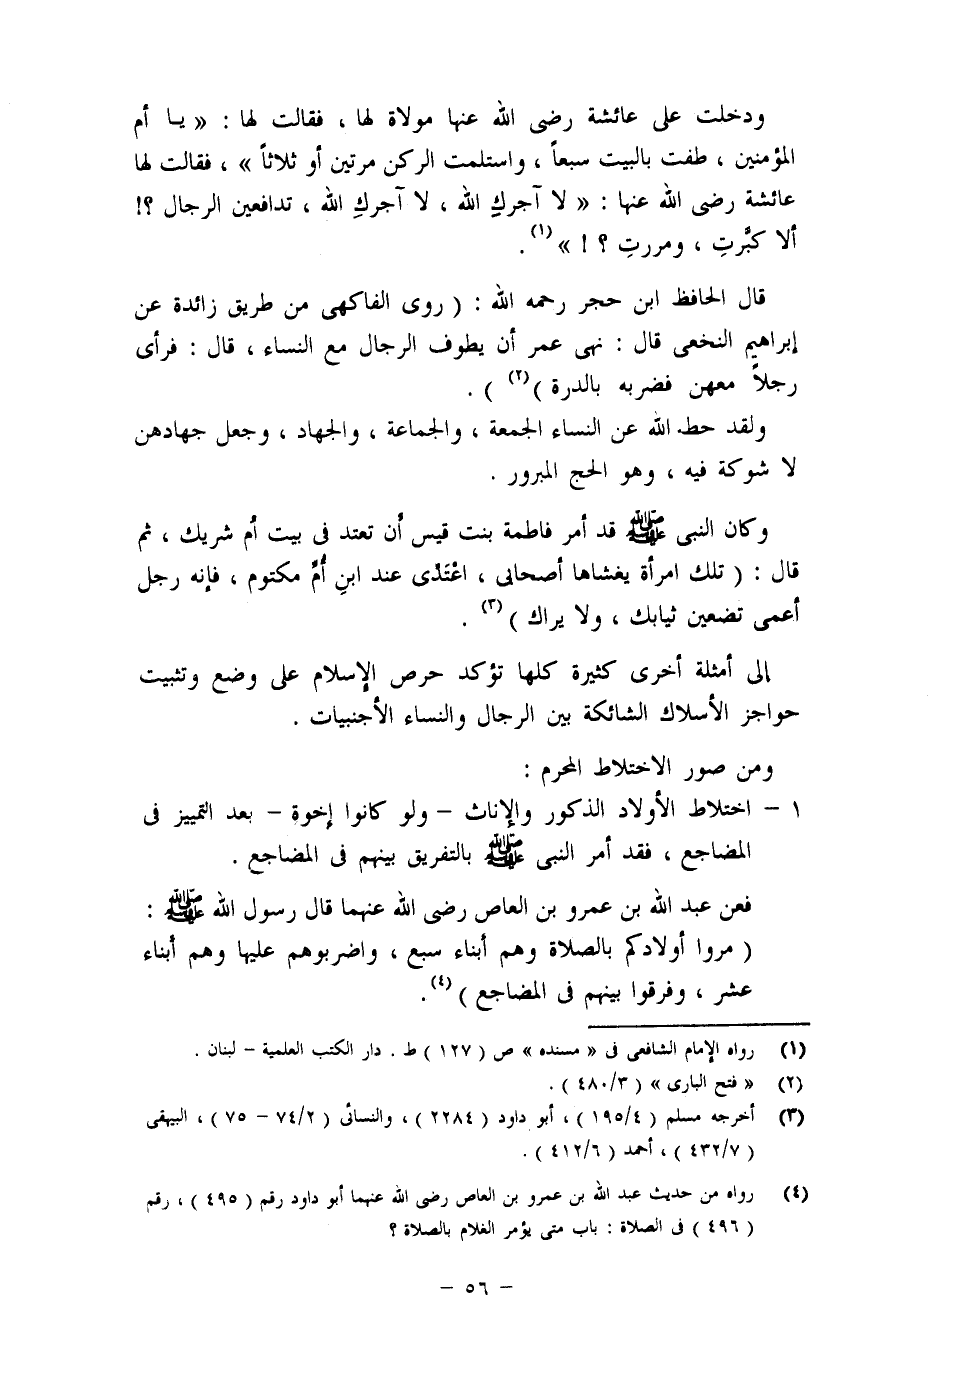 ودخلت على عائشة رضى الله عنها مولاة لها ، فقالت لها : « يــا أم
المؤمنين ، طفت بالبيت سبعاً ، واستلمت الركن مرتين أو ثلاثاً » ، فقالت لها
عائشة رضى الله عنها : « لا آجركِ الله ، لا آجركِ الله ، تدافعين الرجال ؟!
ألا كبَّرتِ ، ومررتِ ؟ ! » (١) .
قال الحافظ ابن حجر رحمه الله : ( روى الفاكهى من طريق زائدة عن
إبراهيم النخعى قال : نهى عمر أن يطوف الرجال مع النساء ، قال : فرأى
رجلاً معهن فضربه بالدرة ) (٢) ) .
ولقد حط الله عن النساء الجمعة ، والجماعة ، والجهاد ، وجعل جهادهن
لا شوكة فيه ، وهو الحج المبرور .
وكان النبى ﷺ قد أمر فاطمة بنت قيس أن تعتد فى بيت أم شريك ، ثم
قال : ( تلك امرأة يغشاها أصحابى ، اعْتَدْى عند ابنِ أمِّ مكتوم ، فإنه رجل
أعمى تضعين ثيابك ، ولا يراك ) (٣) .
إلى أمثلة أخرى كثيرة كلها تؤكد حرص الإسلام على وضع وتثبيت
حواجز الأسلاك الشائكة بين الرجال والنساء الأجنبيات .
ومن صور الاختلاط المحرم :
١ – اختلاط الأولاد الذكور والإناث – ولو كانوا إخوة – بعد التمييز فى
المضاجع ، فقد أمر النبى ﷺ بالتفريق بينهم فى المضاجع .
فعن عبد الله بن عمرو بن العاص رضى الله عنهما قال رسول الله ﷺ :
( مروا أولادكم بالصلاة وهم أبناء سبع ، واضربوهم عليها وهم أبناء
عشر ، وفرقوا بينهم فى المضاجع ) (٤) .
(١) رواه الإمام الشافعى فى « مسنده » ص ( ١٢٧ ) ط . دار الكتب العلمية – لبنان .
(٢) « فتح البارى » ( ٤٨٠/٣ ) .
(٣) أخرجه مسلم ( ١٩٥/٤ ) ، أبو داود ( ٢٢٨٤ ) ، والنسائى ( ٧٤/٢ – ٧٥ ) ، البيهقى
( ٤٣٢/٧ ) ، أحمد ( ٤١٢/٦ ) .
(٤) رواه من حديث عبد الله بن عمرو بن العاص رضى الله عنهما أبو داود رقم ( ٤٩٥ ) ، رقم
( ٤٩٦ ) فى الصلاة : باب متى يؤمر الغلام بالصلاة ؟
– ٥٦ –